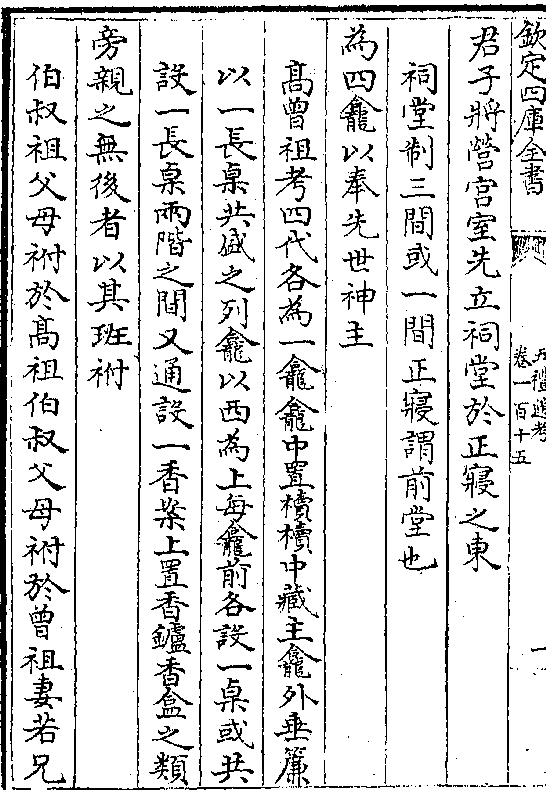 欽定四庫全書
五禮通考
卷一百十五
君子將營宮室先立祠堂於正寢之東
祠堂制三間或一間正寢謂前堂也
為四龕以奉先世神主
髙曾祖考四代各為一龕龕中置櫝櫝中藏主龕外垂簾
以一長桌共盛之列龕以西為上每龕前各設一桌或共
設一長桌兩階之間又通設一香案上置香鑪香盒之類
旁親之無後者以其班祔
伯叔祖父母祔於髙祖伯叔父母祔於曾祖妻若兄